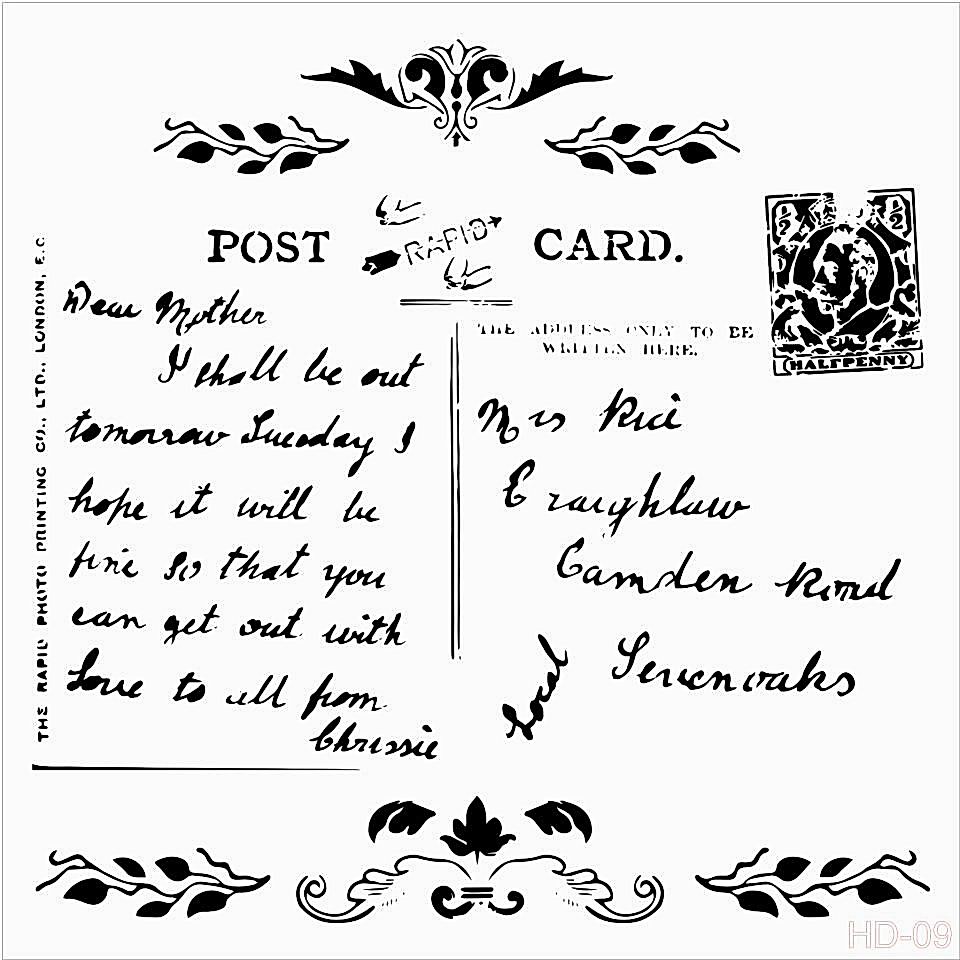 POST RAPID CARD.
1/2 1/2
HALFPENNY
THE RAPID PHOTO PRINTING CO., LTD., LONDON, E.C
Dear Mother
I shall be out
tomorrow Tuesday I
hope it will be
fine so that you
can get out with
Love to all from
Chrissie
THE ADDRESS ONLY TO BE
WRITTEN HERE.
Mrs Rice
Craighlaw
Camden Road
Sevenoaks
Local
HD-09